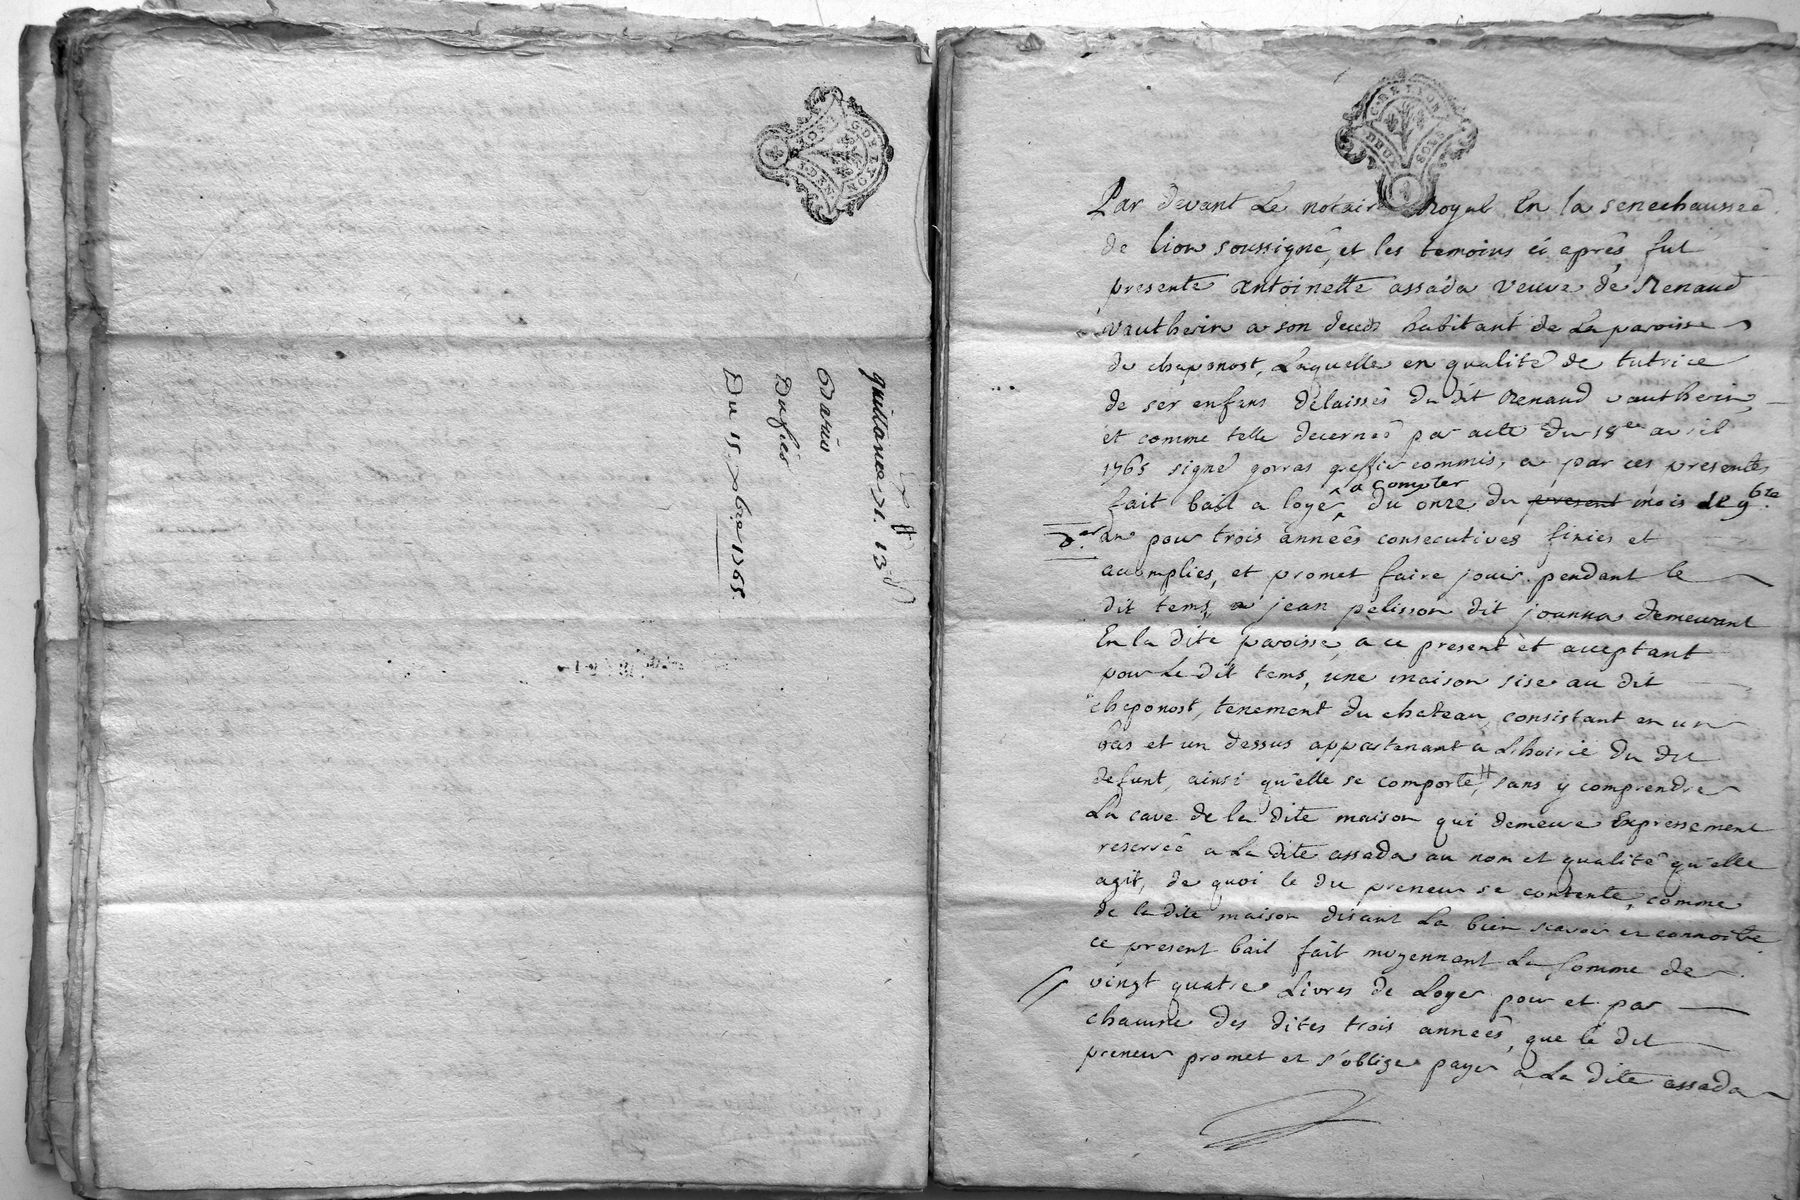 GDE LYON
DEUX SOLS
quittance 71. 13
Danis
Dufies
Du 15. 7bre 1765.
GDE LYON
DEUX SOLS
Par devant Le notaire Royal En la senechaussée
de lion soussigné, et les temoins ci après fut
presente antoinette assada veuve de Renaud
vautherin a son deceds habitant de La paroisse
de chaponost, Laquelle en qualité de tutrice
de ses enfans delaissés du dit Renaud vautherin,
et comme telle decernée par acte du 18e avril
1765 signé gorras greffier commis, a par ces presentes
fait bail a loyé a compter du onze du present mois de 9bre
an pour trois années consecutives finies et
acomplies, et promet faire jouir pendant le
dit tems, a jean pelisson dit joanna demeurant
En la dite paroisse, a ce present et acceptant
pour Le dit tems, une maison sise au dit
chaponost, tenement du chateau, consistant en un
bas et un dessus appartenant a Lhoirie du dit
defunt, ainsi qu'elle se comporte, # sans y comprendre
La cave de la dite maison qui demeure Expressement
reservée a La dite assada au nom et qualité qu'elle
agit, de quoi le dit preneur se contente, comme
de la dite maison disant La bien scavoir et connoitre
ce present bail fait moyennant La somme de
vingt quatre Livres de Loyer pour et par
chacune des dites trois années, que le dit
preneur promet et s'oblige payer a La dite assada